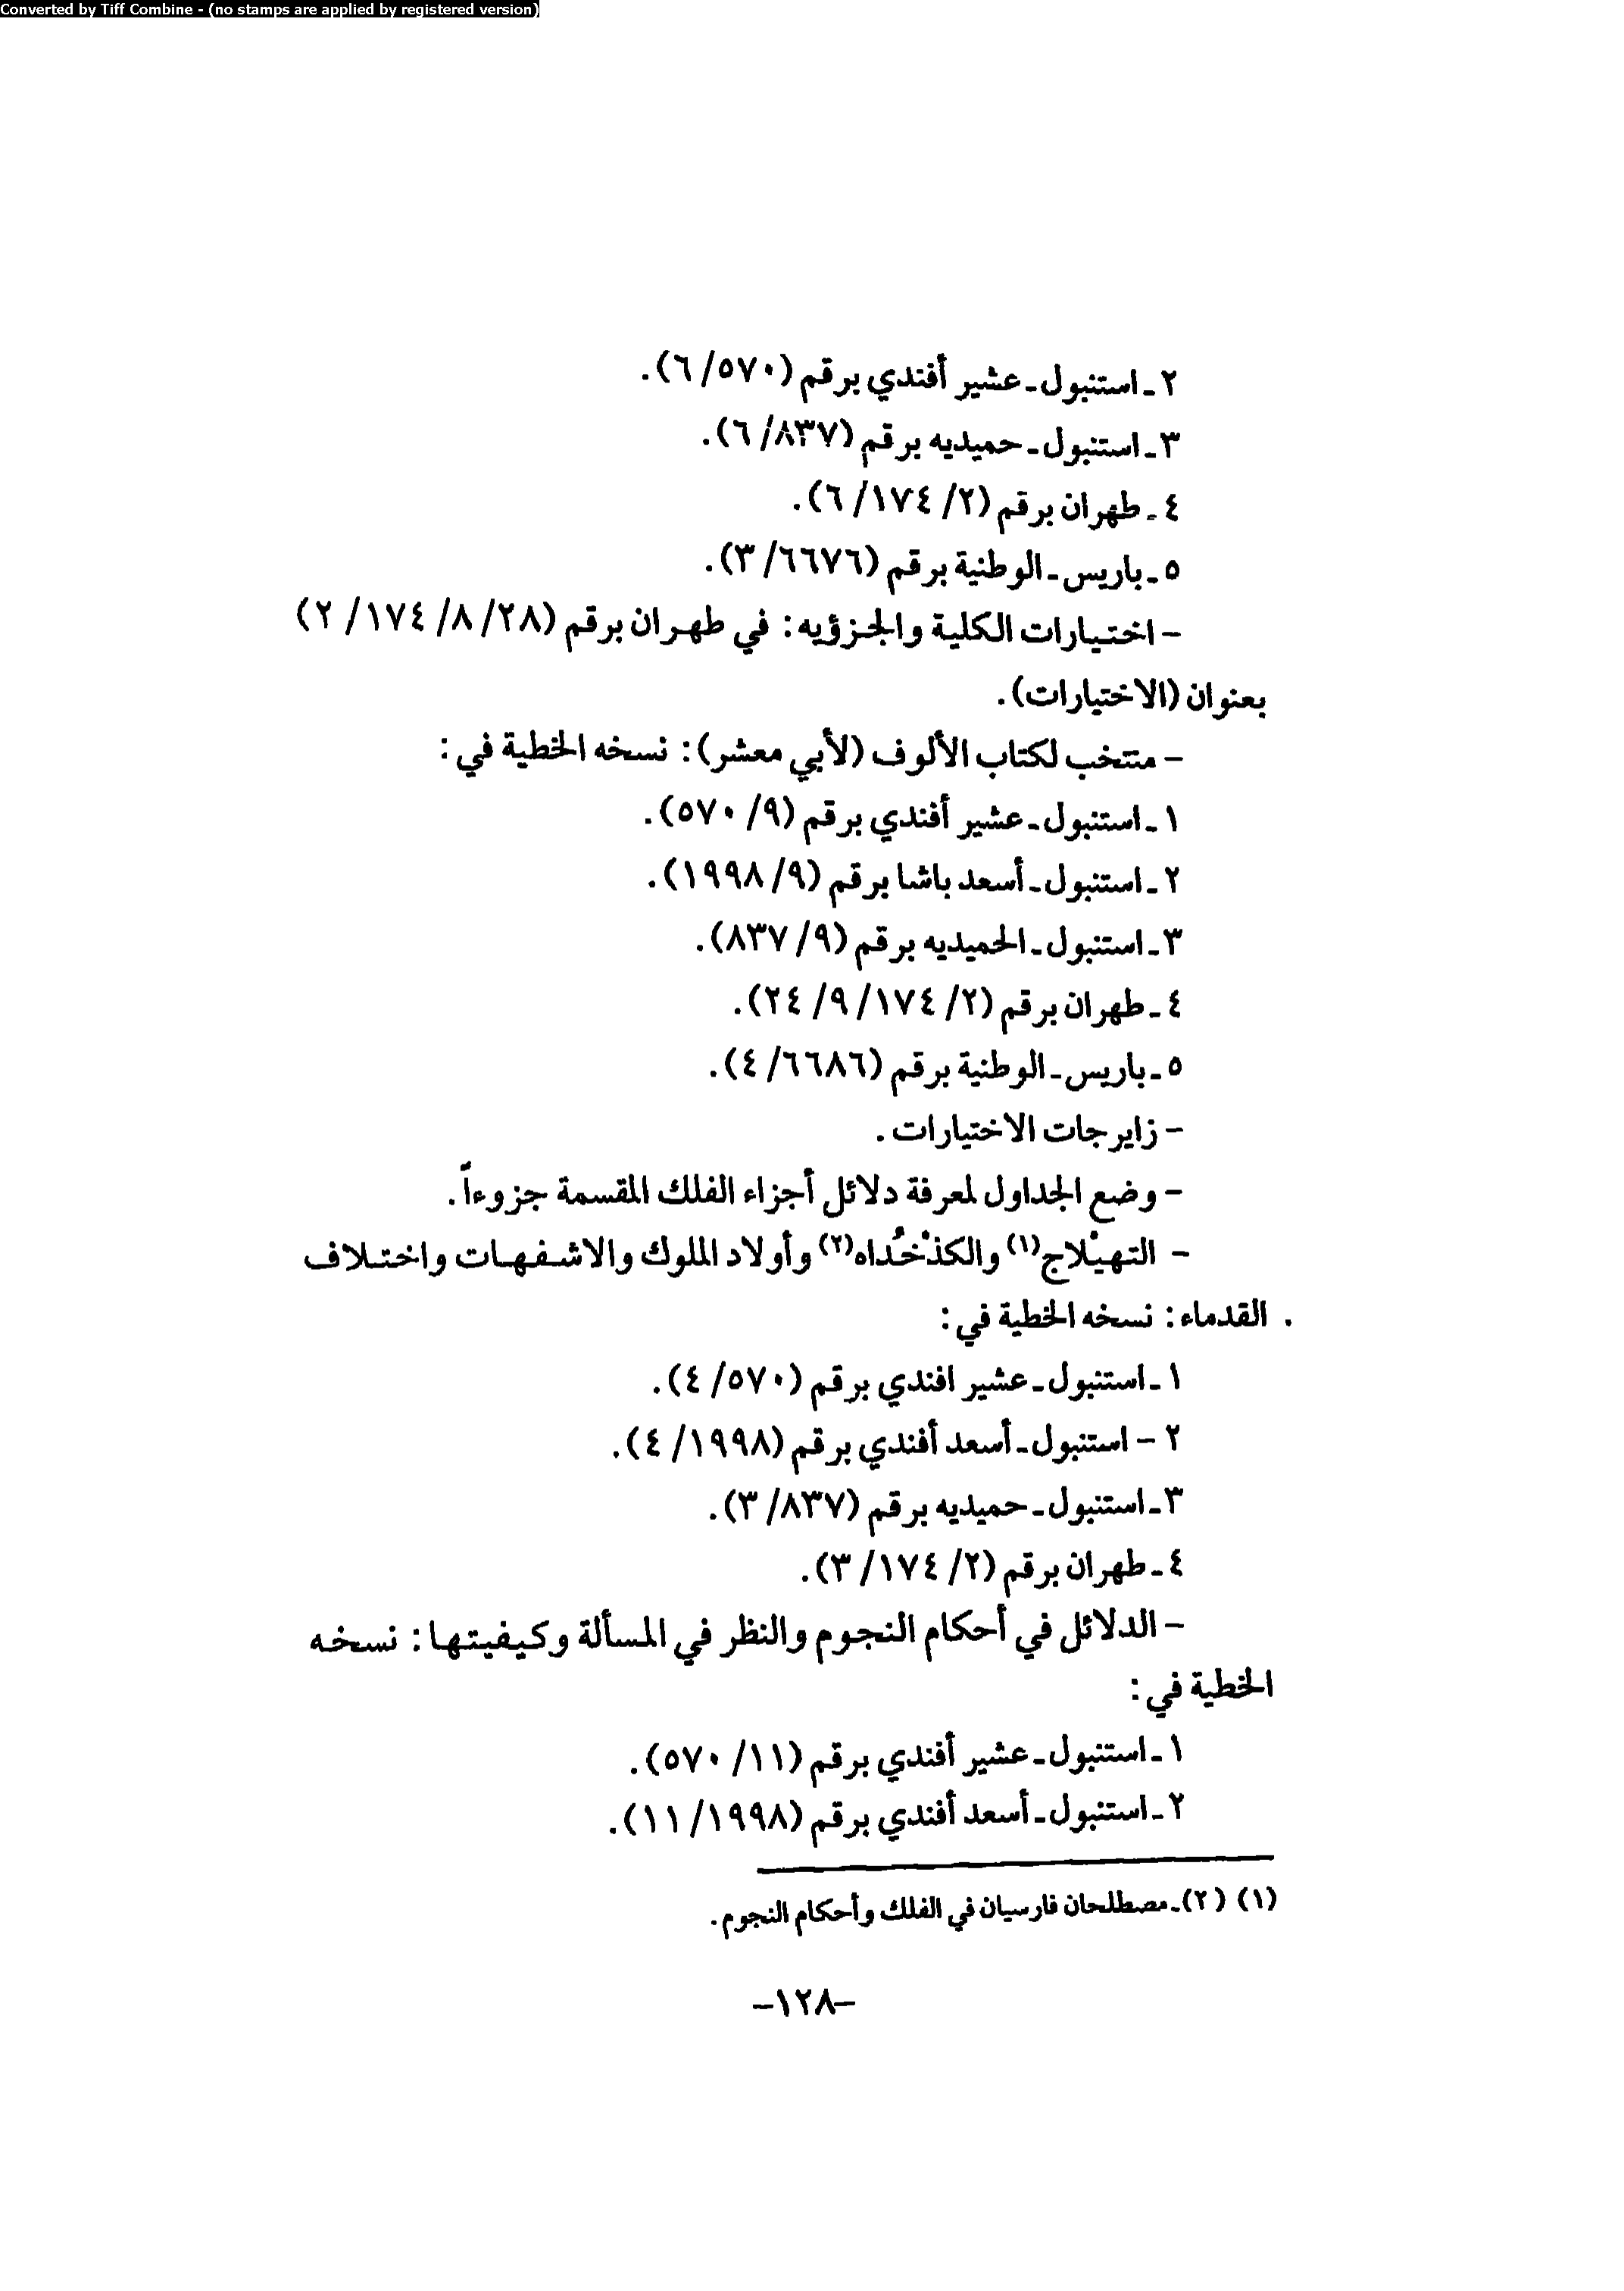 Converted by Tiff Combine - (no stamps are applied by registered version)
٢ـ استنبول ـ عشير أفندي برقم (٥٧٠/ ٦).
٣ـ استنبول ـ حميديه برقم (٨٣٧/ ٦).
٤ـ طهران برقم (٢/ ١٧٤/ ٦).
٥ـ باريس ـ الوطنية برقم (٦٦٧٦/ ٣).
– اختيارات الكلية والجزؤيه: في طهران برقم (٢٨/ ٨/ ١٧٤/ ٢)
بعنوان (الاختيارات).
– منتخب لكتاب الألوف (لأبي معشر): نسخه الخطية في:
١ـ استنبول ـ عشير أفندي برقم (٩/ ٥٧٠).
٢ـ استنبول ـ أسعد باشا برقم (٩/ ١٩٩٨).
٣ـ استنبول ـ الحميديه برقم (٩/ ٨٣٧).
٤ـ طهران برقم (٢/ ١٧٤/ ٩/ ٢٤).
٥ـ باريس ـ الوطنية برقم (٦٦٨٦/ ٤).
– زايرجات الاختيارات.
– وضع الجداول لمعرفة دلائل أجزاء الفلك المقسمة جزوءاً.
– التهيْلاج(١) والكذْخُداه(٢) وأولاد الملوك والاشفهات واختلاف
القدماء: نسخه الخطية في:
١ـ استنبول ـ عشير افندي برقم (٥٧٠/ ٤).
٢ – استنبول ـ أسعد أفندي برقم (١٩٩٨/ ٤).
٣ـ استنبول ـ حميديه برقم (٨٣٧/ ٣).
٤ـ طهران برقم (٢/ ١٧٤/ ٣).
– الدلائل في أحكام النجوم والنظر في المسألة وكيفيتها: نسخه
الخطية في:
١ـ استنبول ـ عشير أفندي برقم (١١/ ٥٧٠).
٢ـ استنبول ـ أسعد أفندي برقم (١٩٩٨/ ١١).
(١) (٢)ـ مصطلحان فارسيان في الفلك وأحكام النجوم.
–١٢٨–